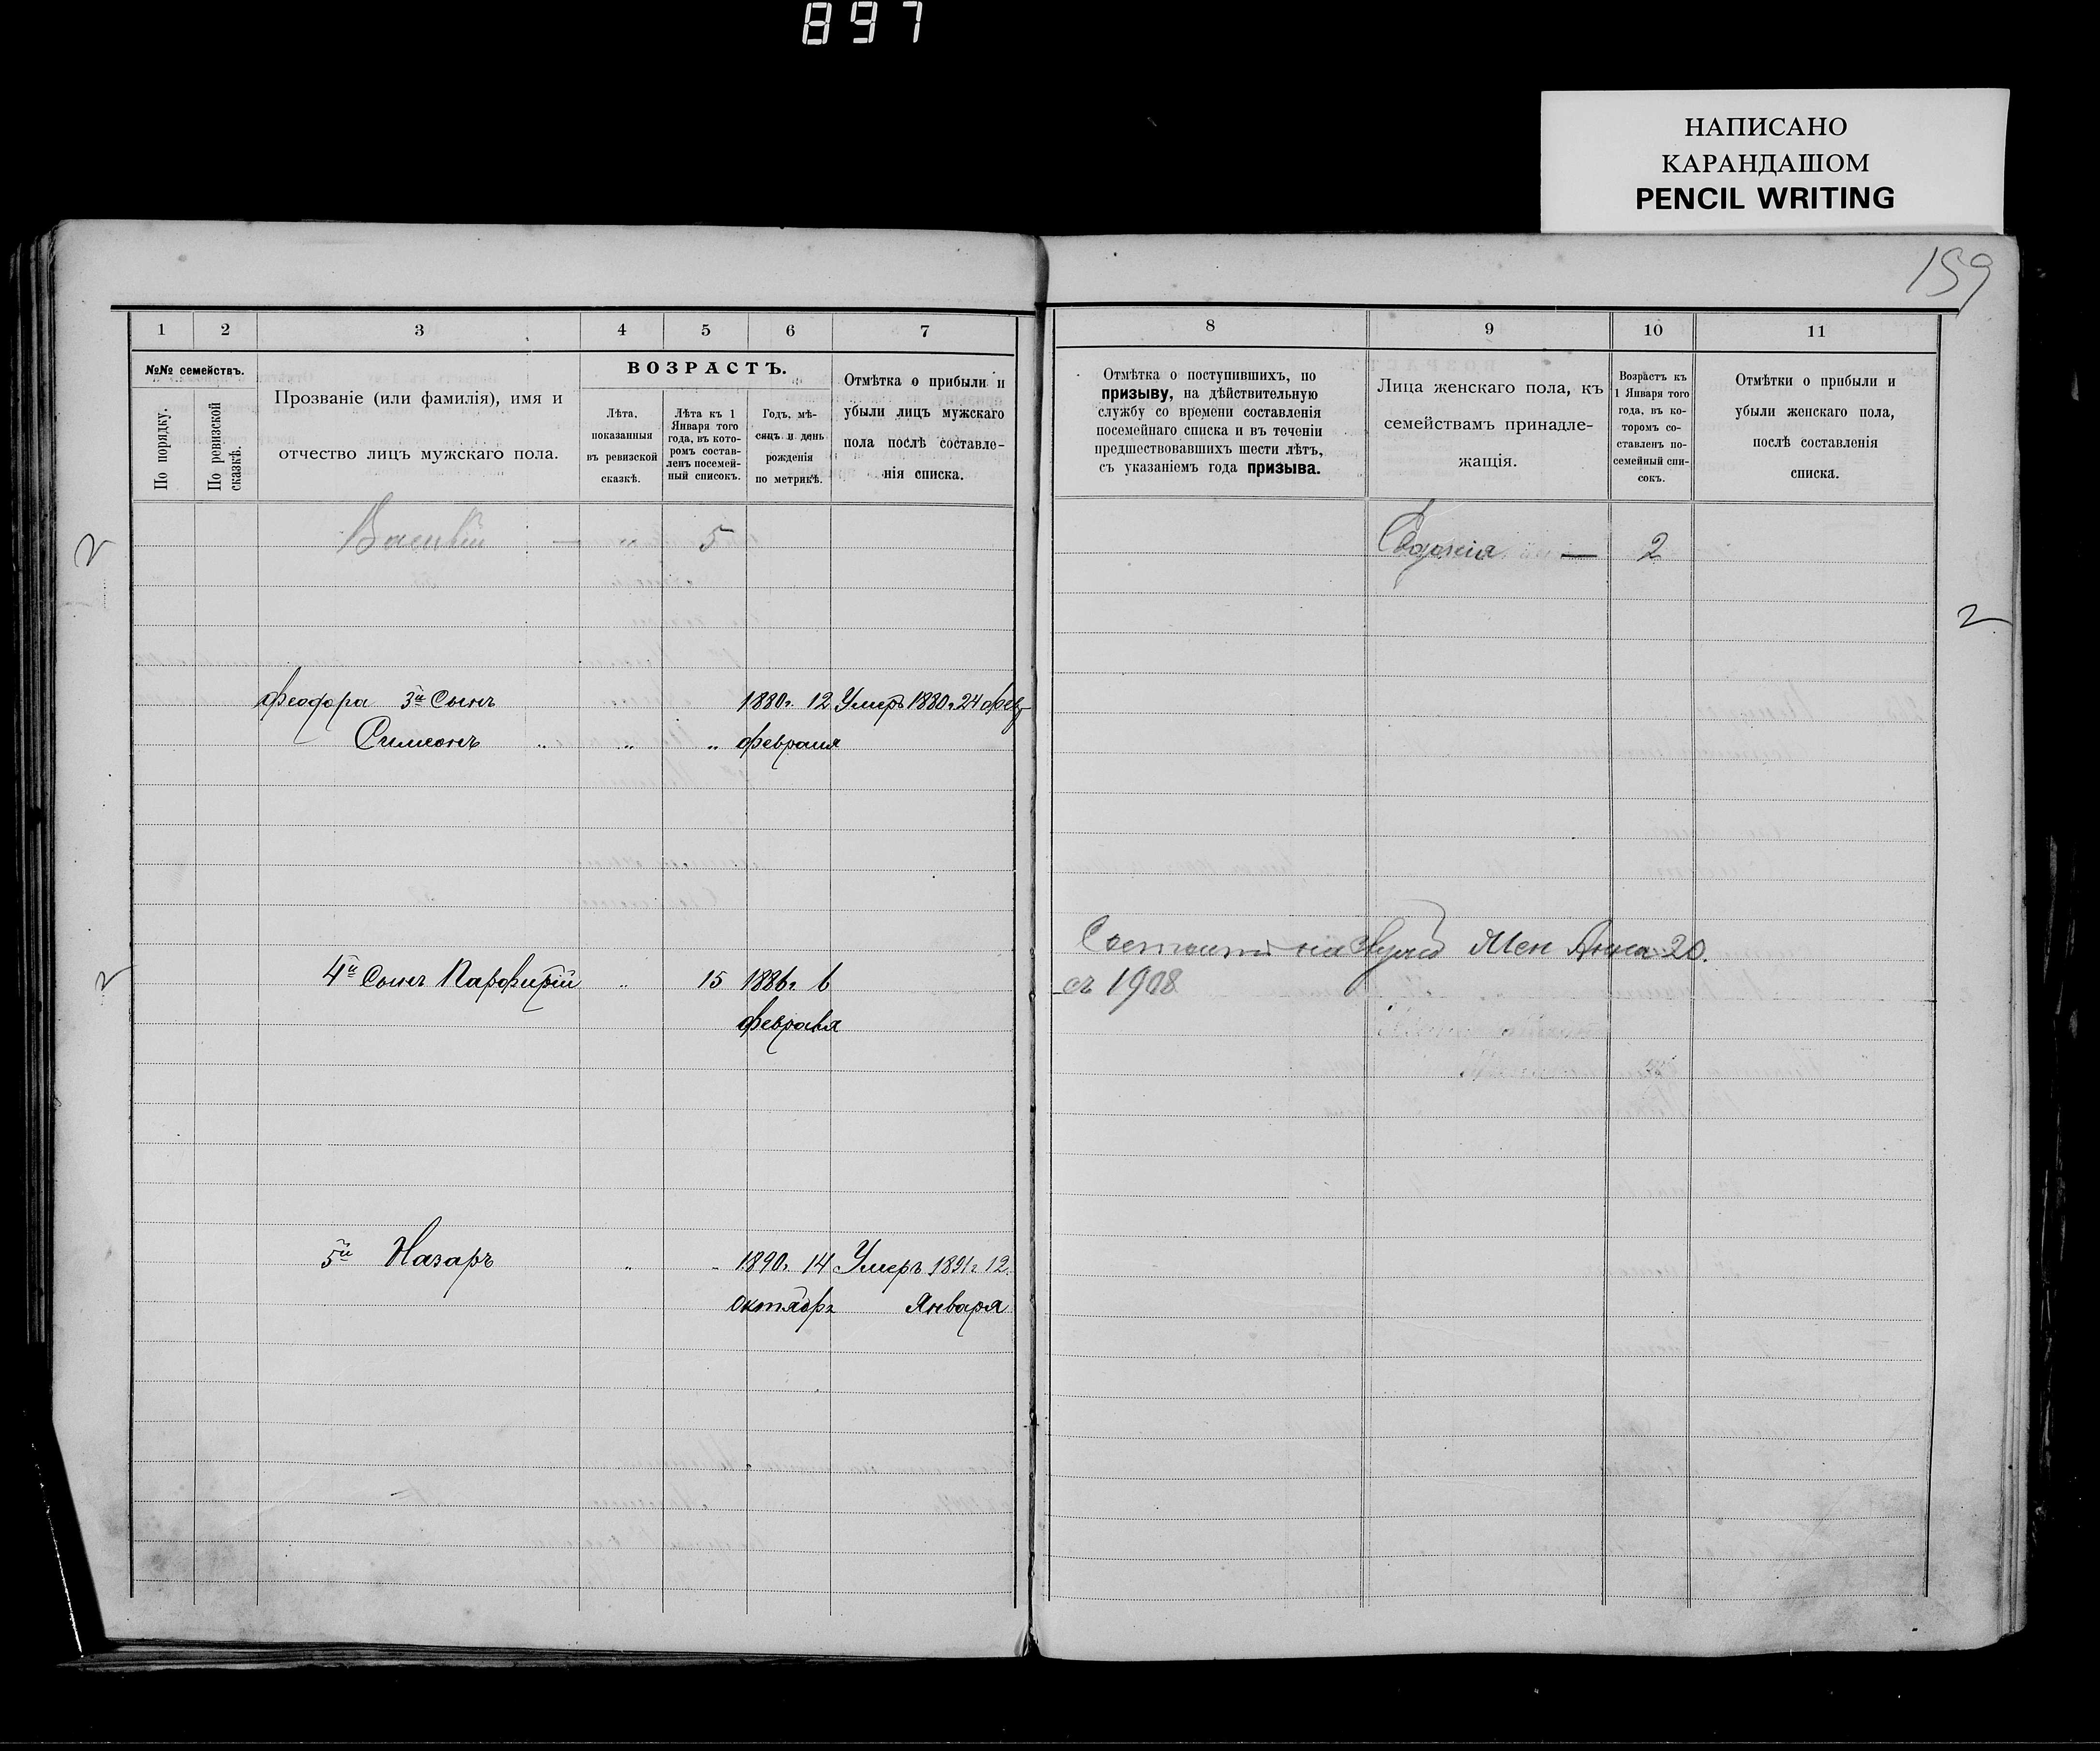 897
НАПИСАНО
КАРАНДАШОМ
PENCIL WRITING
159
1 2 3 4 5 6 7
№№ семействъ.
По порядку.
По ревизской
сказкѣ.
Прозваніе (или фамилія), имя и
отчество лицъ мужскаго пола.
ВОЗРАСТЪ.
Лѣта,
показанныя
въ ревизской
сказкѣ.
Лѣта къ 1
Января того
года, въ кото-
ромъ состав-
ленъ посемей-
ный списокъ.
Годъ, мѣ-
сяцъ и день
рожденія
по метрикѣ.
Отмѣтка о прибыли и
убыли лицъ мужскаго
пола послѣ составле-
нія списка.
2
Василій — „ 5
Феодора 3й Сынъ 1880г. 12 Умеръ 1880г. 24 февр
Симеонъ „ „ „ февраля
2
4й Сынъ Парфирій „ 15 1886г. 6
февраля
5й Назаръ „ „ 1890г. 14 Умеръ 1891г. 12
октября Января
8 9 10 11
Отмѣтка о поступившихъ, по
призыву, на дѣйствительную
службу со времени составленія
посемейнаго списка и въ теченіи
предшествовавшихъ шести лѣтъ,
съ указаніемъ года призыва.
Лица женскаго пола, къ
семействамъ принадле-
жащія.
Возрастъ къ
1 Января того
года, въ ко-
торомъ со-
ставленъ по-
семейный спи-
сокъ.
Отмѣтки о прибыли и
убыли женскаго пола,
послѣ составленія
списка.
— 2
2
Состоитъ на Жен Анна 20.
съ 1908